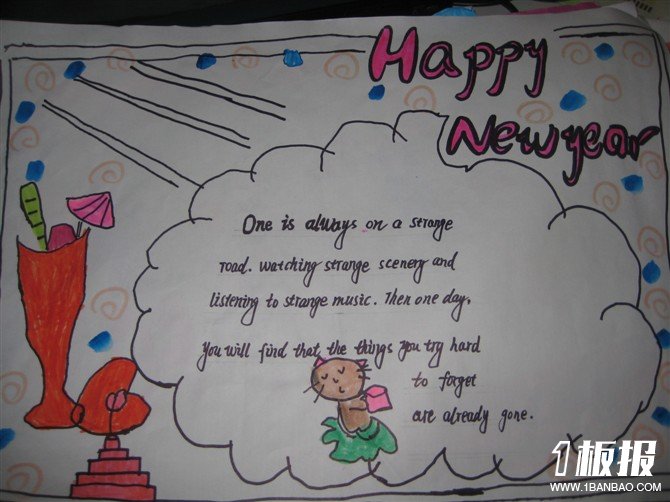 Happy
New year
One is always on a strange
road. watching strange scenery and
listening to strange music. Then one day,
you will find that the things you try hard
to forget
are already gone.
1板报
WWW.1BANBAO.COM